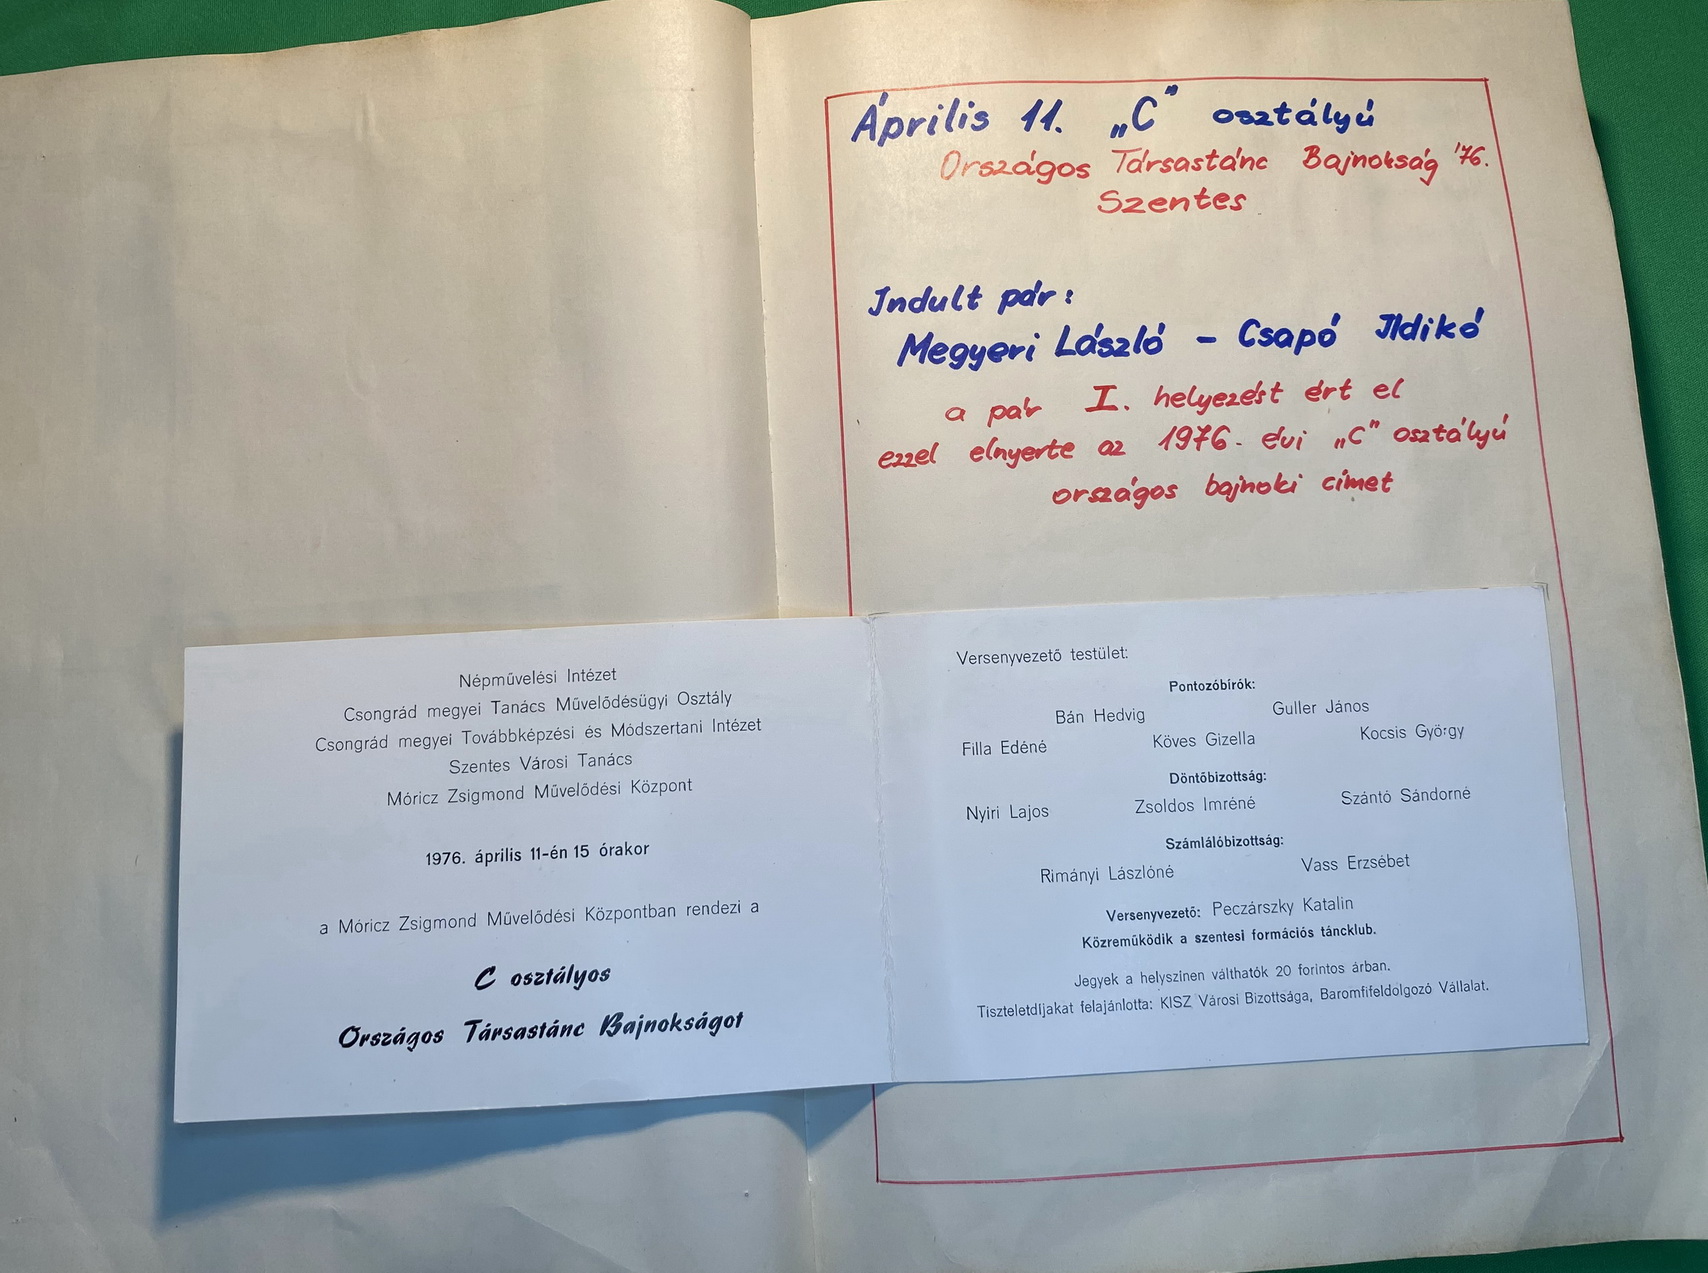 Április 11. „C” osztályú
Országos Társastánc Bajnokság '76.
Szentes
Indult pár:
Megyeri László - Csapó Ildikó
a pár I. helyezést ért el
ezzel elnyerte az 1976. évi „C” osztályú
országos bajnoki címet
Népművelési Intézet
Csongrád megyei Tanács Művelődésügyi Osztály
Csongrád megyei Továbbképzési és Módszertani Intézet
Szentes Városi Tanács
Móricz Zsigmond Művelődési Központ
1976. április 11-én 15 órakor
a Móricz Zsigmond Művelődési Központban rendezi a
C osztályos
Országos Társastánc Bajnokságot
Versenyvezető testület:
Pontozóbírók:
Bán Hedvig Guller János
Filla Edéné Köves Gizella Kocsis György
Döntőbizottság:
Nyiri Lajos Zsoldos Imréné Szántó Sándorné
Számlálóbizottság:
Rimányi Lászlóné Vass Erzsébet
Versenyvezető: Peczárszky Katalin
Közreműködik a szentesi formációs táncklub.
Jegyek a helyszinen válthatók 20 forintos árban.
Tiszteletdíjakat felajánlotta: KISZ Városi Bizottsága, Baromfifeldolgozó Vállalat.